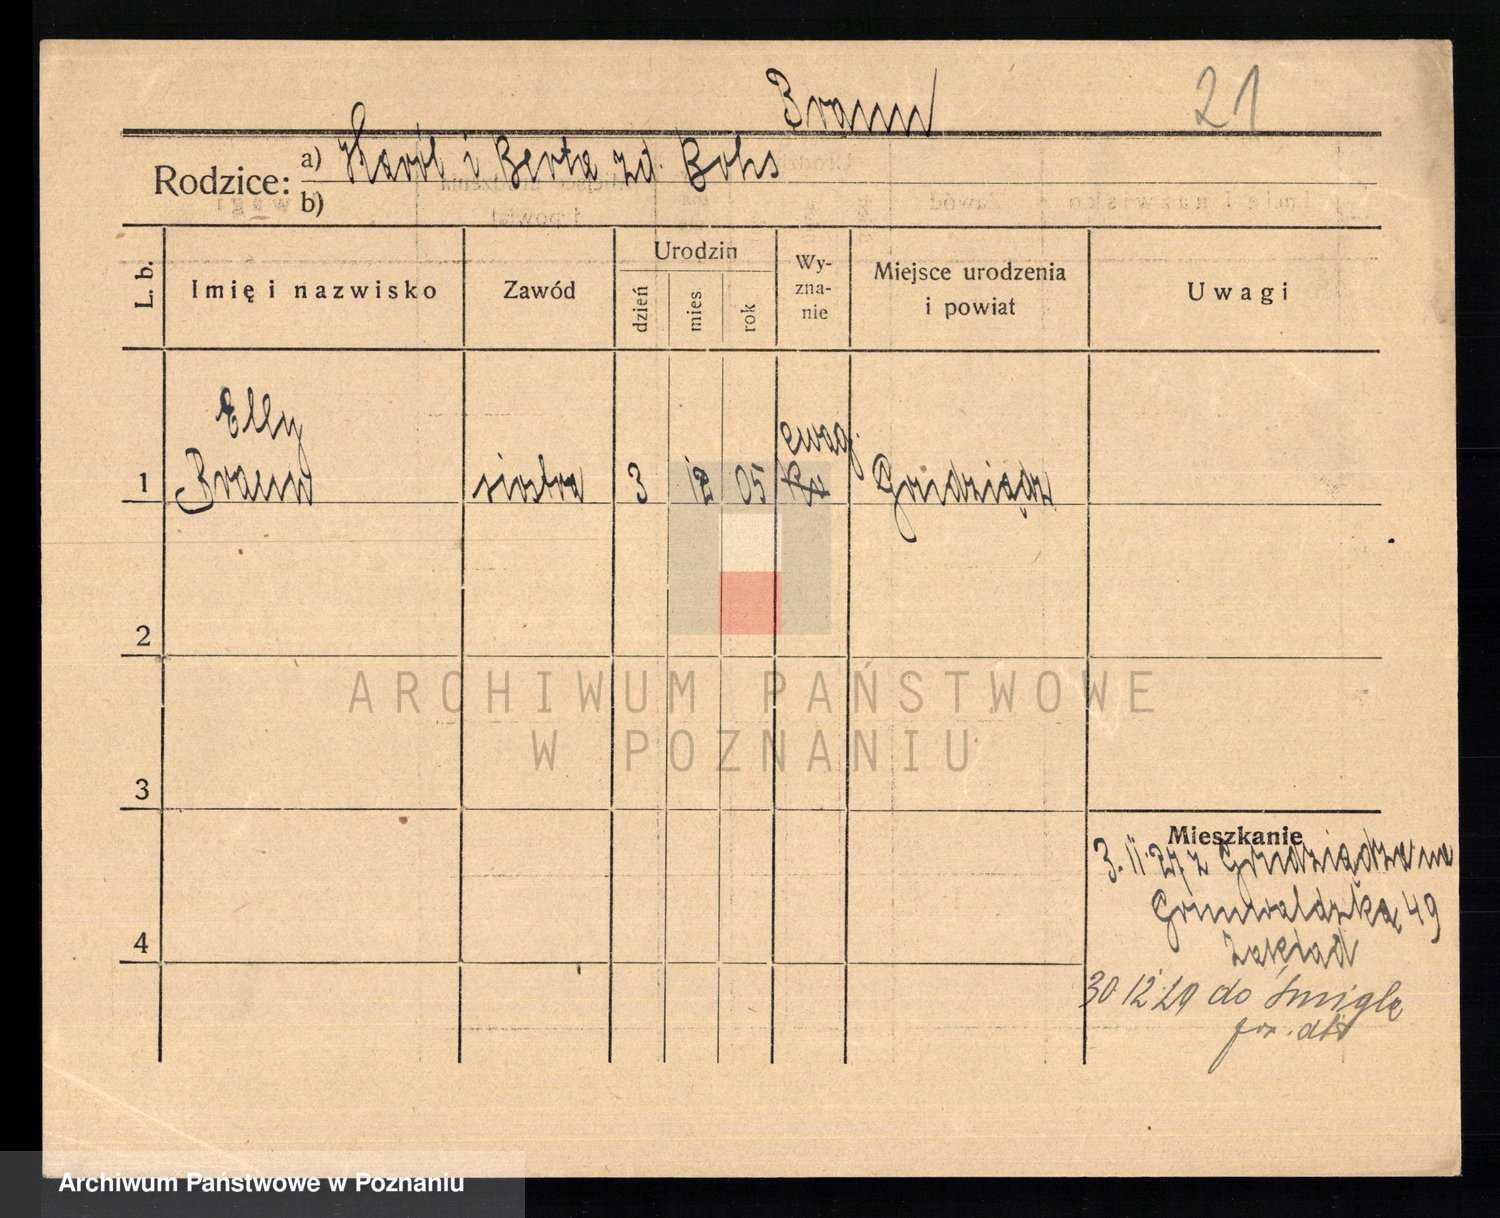 Braun
21
Rodzice:
a) Karol i Berta zd. Bohs
b)
L. b.
Imię i nazwisko
Zawód
Urodzin
dzień
mies
rok
Wy-
zna-
nie
Miejsce urodzenia
i powiat
Uwagi
Elly
1 Braun siostra 3 12 05 ewag. Grudziądz
2
ARCHIWUM PAŃSTWOWE
W POZNANIU
3
Mieszkanie
3. 11. 27 z Grudziądza na
Grunwaldzka 49
Zakład
4
30 12 29 do Śmigla
Archiwum Państwowe w Poznaniu